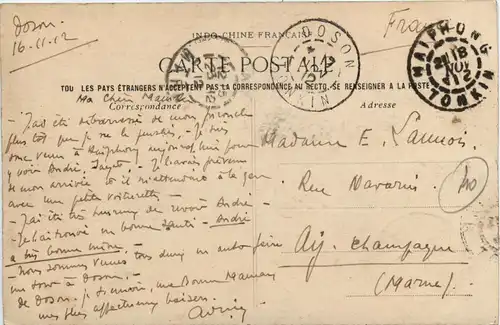 Doson
16.11.12
INDO-CHINE FRANÇAISE
France
CARTE POSTALE
DOSON
TONKIN
HAIPHONG
18 NOV 12
TONKIN
TOU LES PAYS ÉTRANGERS N'ACCEPTENT PAS LA CORRESPONDANCE AU RECTO. SE RENSEIGNER A LA POSTE
Correspondance
Adresse
Ma Chère Maman
- J'ai été débarrassé de mon
plus tôt que je ne le pensais, - Je suis
venu à Haïphong aujourd'hui pour
y voir André, . Je l'avais prévenu
de mon arrivée et il m'attendait à la gare
avec une petite voiturette -
- J'ai été très heureux de revoir André -
- Je l'ai trouvé en bonne santé - André
a très bonne mine -
Nous sommes venus tous deux en auto faire
un tour à Doson -
de Doson. je t'envoie, ma Bonne Maman
mes plus affectueux baisers.
Madame E. Launois
Rue Navarin
Aÿ. Champagne
(Marne)
40